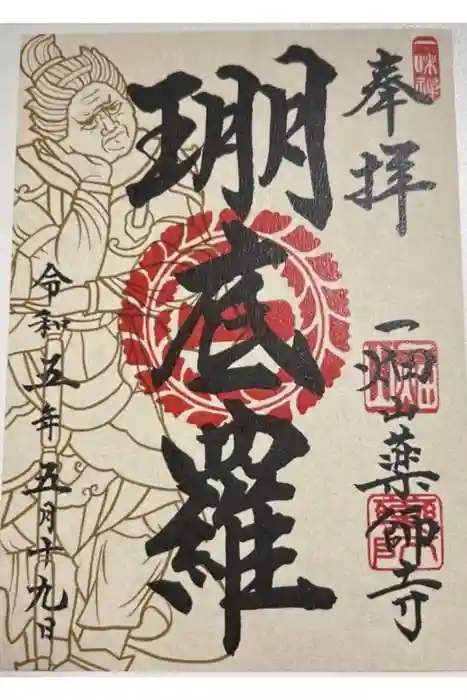 一味禅
奉拝
一畑山薬師寺
珊底羅
令和五年五月十九日